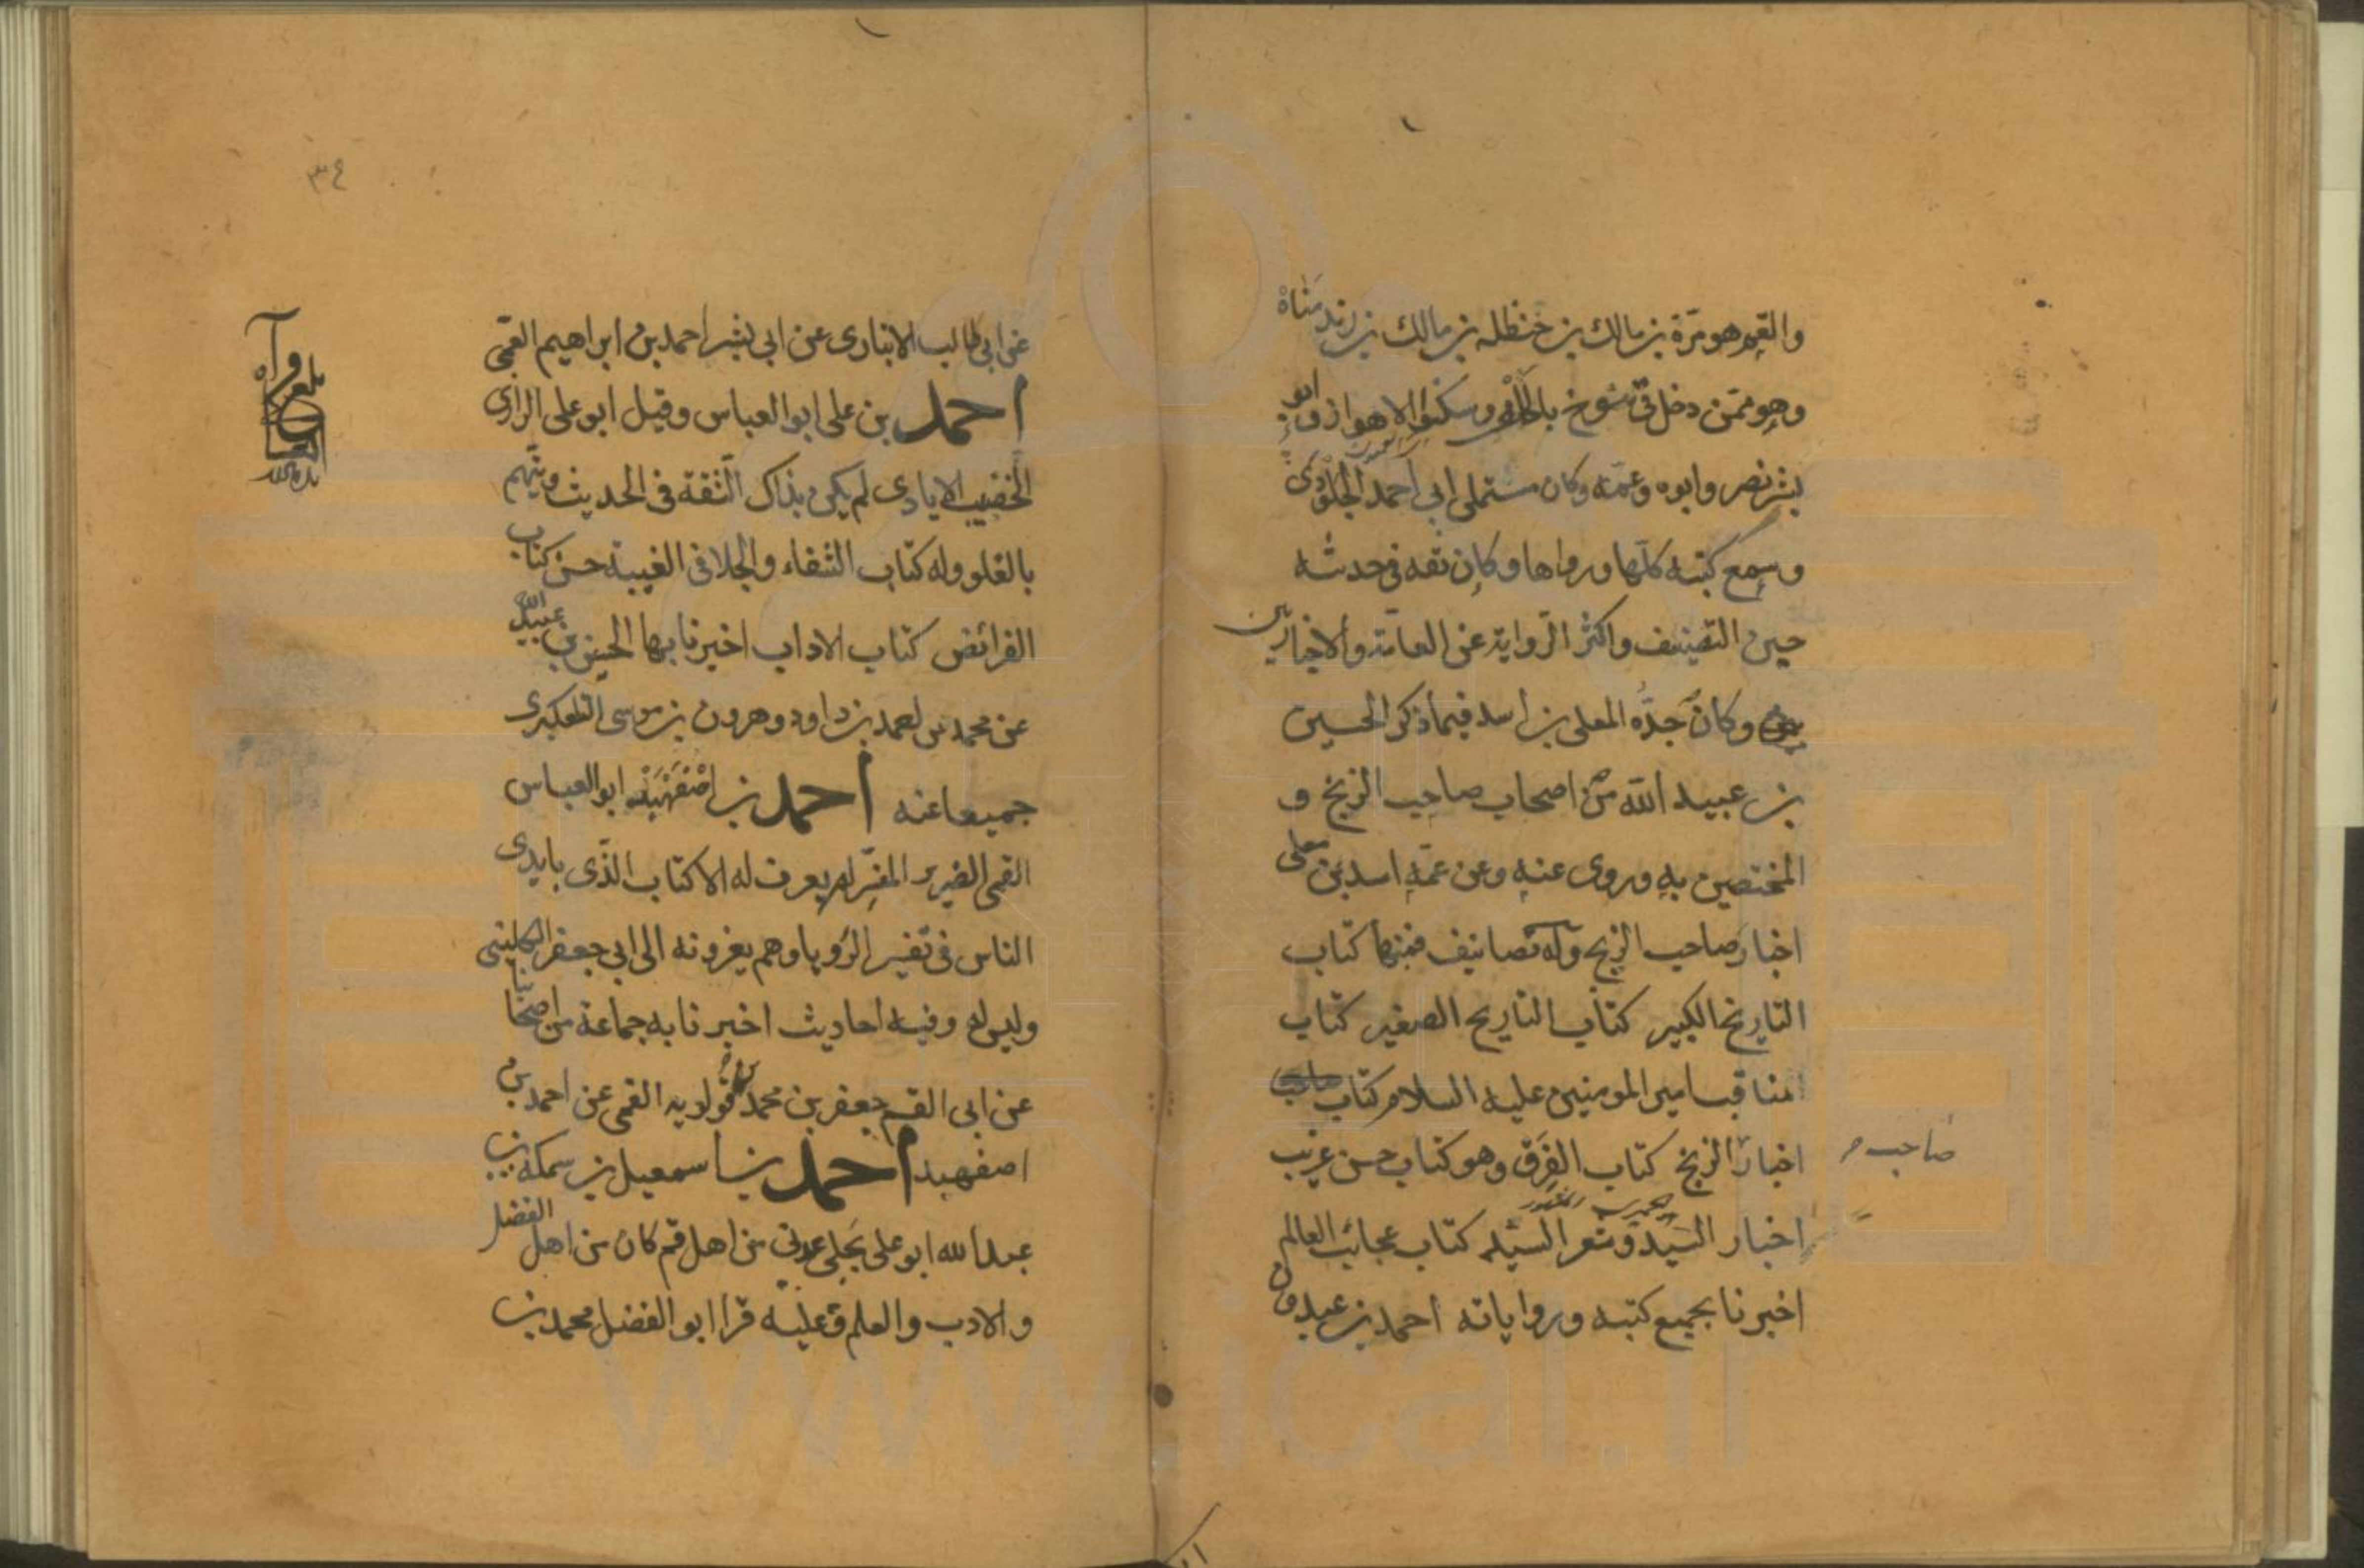 والعم هو مرّة بن مالك بن حنظله بن مالك بن زيد مناة
وهو ممّن دخل في تنوخ بالحلف وسكنوا الاهواز وابو
بشر نصر وابوه وعمّه وكان مستملى ابي احمد الجلّودى
وسمع كتبه كلّها ورواها وكان ثقه في حدثه
حسن التصنيف واكثر الرّواية عن العامّة والاخباريين
وكان جدّه المعلى بن اسد فيما ذكر الحسين
بن عبيد الله من اصحاب صاحب الزنج و
المختصين به وروى عنه وعن عمّه اسد بن معلى
اخبار صاحب الزنج وله تصانيف فمنها كتاب
التاريخ الكبير كتاب التاريخ الصغير كتاب
مناقب امير المومنين عليه السلام كتاب
اخبار الزنج كتاب الفِرَق وهو كتاب حسن غريب
صاحب
اخبار السّيد وشعر السّيد كتاب عجائب العالم
اخبرنا بجميع كتبه ورواياته احمد بن عبدون
٣٤
عن ابي طالب الانبارى عن ابي بشر احمد بن ابراهيم العمّي
احمد بن على ابو العباس وقيل ابو على الرازى
الخضيب الايادى لم يكن بذاك الثقة في الحديث ويتّهم
بالغلو وله كتاب الشفاء والجلا في الغيبة حسن كتاب
الفرائض كتاب الاداب اخبرنا بهما الحسين بن عبيد الله
عن محمد بن احمد بن داود وهرون بن موسى التلعكبرى
جميعا عنه احمد بن اصْفَهْبَذ ابو العباس
القمى الضرير المفسّر لم يعرف له الا كتاب الذّى بايدى
الناس في تفسير الرّويا وهم يعزونه الى ابي جعفر الكلينى
وليس له وفيه احاديث اخبرنا به جماعة من اصحابنا
عن ابي القسم جعفر بن محمد بن قولويه القمى عن احمد بن
اصفهبد احمد بن اسمعيل بن سمكة بن
عبد الله ابو على بَجَلِى عربيّ من اهل قم كان من اهل الفضل
والادب والعلم وعليه قرا ابو الفضل محمد بن